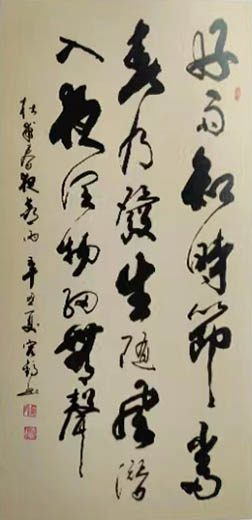 好雨知時節當
春乃發生隨風潛
入夜潤物細無聲
杜甫春夜喜雨 辛丑夏